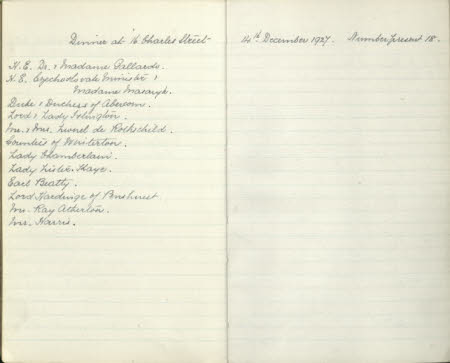 Dinner at 16 Charles Street 14th December 1927. Number present 18.
H.E. Dr. & Madame
H.E. Czechoslovak Minister &
Madame Masaryk.
Duke & Duchess of Abercorn.
Lord & Lady Islington.
Mr. & Mrs. Lionel de Rothschild.
Countess of Winterton.
Lady Chamberlain.
Lady Lister-Kaye.
Earl Beatty.
Lord Hardinge of Penshurst.
Mr. Ray Atherton.
Mr. Harris.